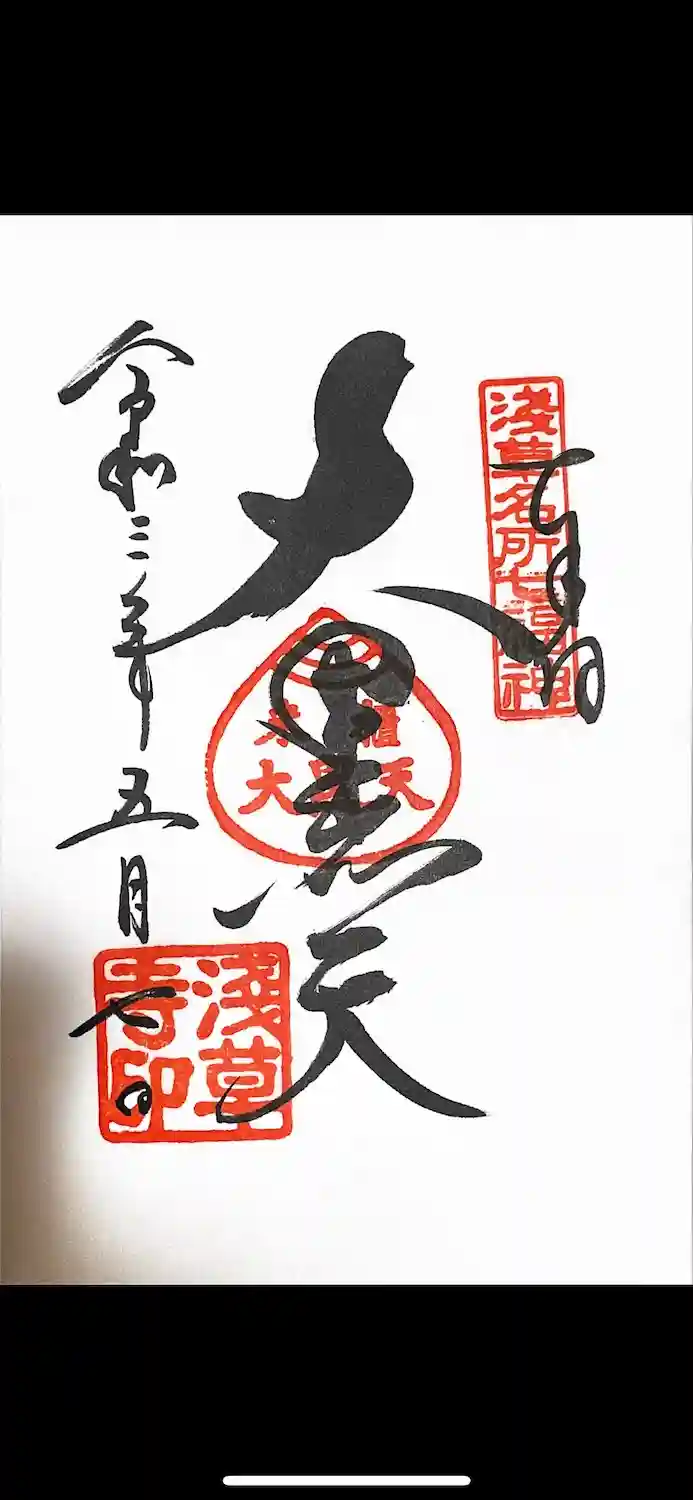 淺草名所七福神
奉拝
大黒天
米櫃
大黒天
令和三年五月七日
淺草
寺印